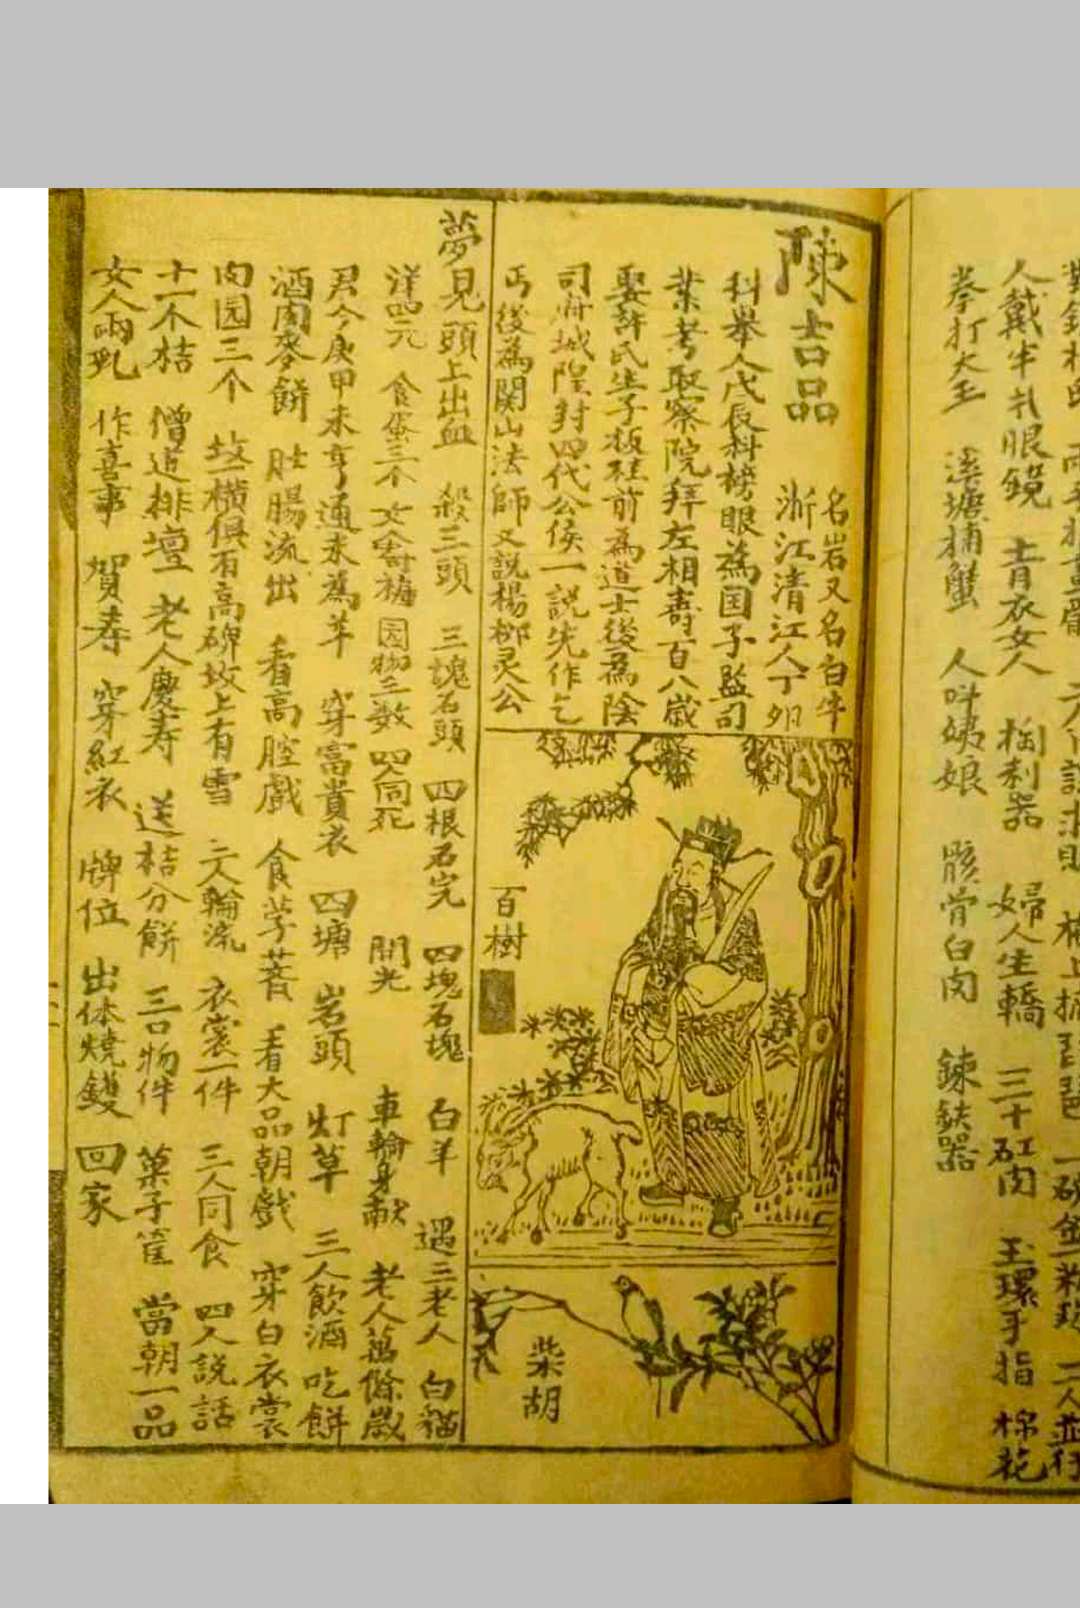 人戴半扎眼鏡 青衣女人 掏利器 婦人生轎 三十缸肉 玉環手指 棉花
拳打大王 溪塘捕蟹 人叫姨娘 骸骨白肉 鍊鉄器
陳吉品
名岩又名白牛
浙江清江人丁卯
科舉人戊辰科榜眼為国子监司
業考取察院拜左相壽百八歲
娶許氏生子板桂前為道士後為陰
司府城隍封四代公侯一説先作乞
丐後為関山法師又説楊柳灵公
百樹
柴胡
夢見頭上出血 殺三頭 三塊石頭 四根石完 四塊石塊 白羊 遇三老人 白猫
洋四元 食蛋三个 园物三数 四人同死 開光 車輪身献 老人萬餘歲
君今庚甲未亨通来為羊 穿富貴衣 四塘 岩頭 灯草 三人飲酒 吃餅
酒肉麥餅 肚腸流出 看高腔戲 食芋 看大品朝戲 穿白衣裳
肉园三个 坟一横俱有高碑坟上有雪 二人輪流 衣裳一件 三人同食 四人説話
十一个桔 僧道排壇 老人慶寿 送桔分餅 三口物件 菓子筐 當朝一品
女人兩乳 作喜事 賀寿 穿紅衣 牌位 出体燒鑊 回家